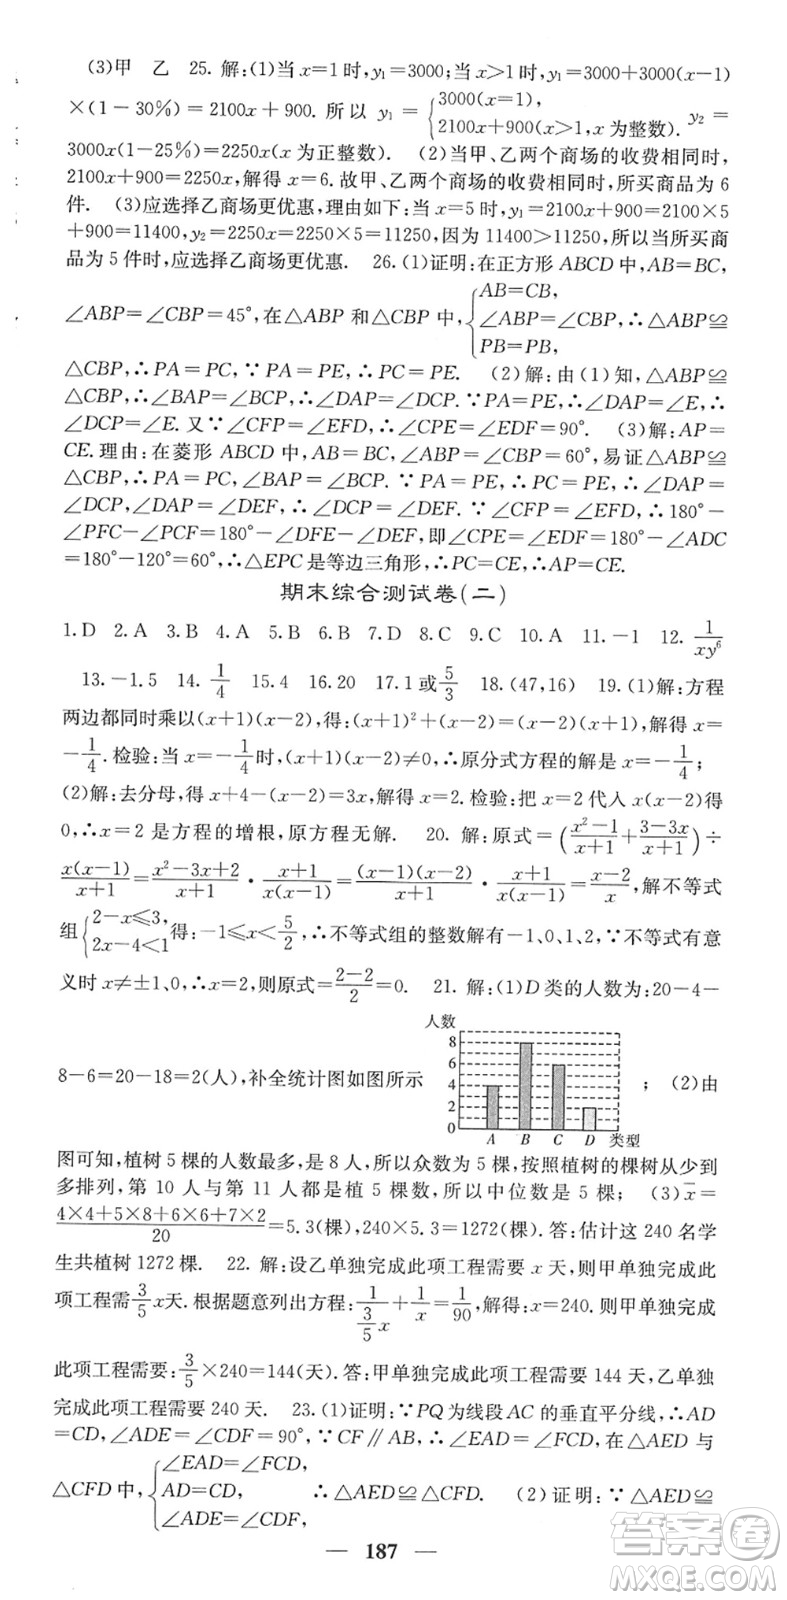 (3)甲　乙　25. 解:(1)当 x=1 时, y₁=3000; 当 x>1 时, y₁=3000+3000(x-1)
×(1-30%)=2100x+900. 所以 y₁={3000(x=1), 2100x+900(x>1, x 为整数). y₂=
3000x(1-25%)=2250x(x 为正整数).　(2)当甲、乙两个商场的收费相同时,
2100x+900=2250x, 解得 x=6. 故甲、乙两个商场的收费相同时, 所买商品为 6
件.　(3)应选择乙商场更优惠, 理由如下: 当 x=5 时, y₁=2100x+900=2100×5
+900=11400, y₂=2250x=2250×5=11250, 因为 11400>11250, 所以当所买商
品为 5 件时, 应选择乙商场更优惠.　26. (1)证明: 在正方形 ABCD 中, AB=BC,
∠ABP=∠CBP=45°, 在△ABP 和△CBP 中, {AB=CB, ∠ABP=∠CBP, PB=PB, ∴△ABP≌
△CBP, ∴PA=PC, ∵PA=PE, ∴PC=PE.　(2)解: 由(1)知, △ABP≌
△CBP, ∴∠BAP=∠BCP, ∴∠DAP=∠DCP. ∵PA=PE, ∴∠DAP=∠E, ∴
∠DCP=∠E. 又∵∠CFP=∠EFD, ∴∠CPE=∠EDF=90°.　(3)解: AP=
CE. 理由: 在菱形 ABCD 中, AB=BC, ∠ABP=∠CBP=60°, 易证△ABP≌
△CBP, ∴PA=PC, ∠BAP=∠BCP. ∵PA=PE, ∴PC=PE, ∴∠DAP=
∠DCP, ∠DAP=∠DEF, ∴∠DCP=∠DEF. ∵∠CFP=∠EFD, ∴180°-
∠PFC-∠PCF=180°-∠DFE-∠DEF, 即∠CPE=∠EDF=180°-∠ADC
=180°-120°=60°, ∴△EPC 是等边三角形, ∴PC=CE, ∴AP=CE.
期末综合测试卷(二)
1. D　2. A　3. B　4. B　5. A　6. B　7. D　8. C　9. C　10. A　11. -1　12. 1/(xy⁶)
13. -1.5　14. 1/4　15. 4　16. 20　17. 1 或 5/3　18. (47,16)　19. (1)解: 方程
两边都同时乘以(x+1)(x-2), 得: (x+1)²+(x-2)=(x-2)(x+1), 解得 x=
-1/4. 检验: 当 x=-1/4 时, (x+1)(x-2)≠0, ∴原分式方程的解是 x=-1/4;
(2)解: 去分母, 得 x+4-(x-2)=3x, 解得 x=2. 检验: 把 x=2 代入 x(x-2)得
0, ∴x=2 是方程的增根, 原方程无解.　20. 解: 原式=((x²-1)/(x+1)+(3-3x)/(x+1))÷
x(x-1)/(x+1)=(x²-3x+2)/(x+1)·(x+1)/(x(x-1))=(x-1)(x-2)/(x+1)·(x+1)/(x(x-1))=(x-2)/x, 解不等式
组{2-x≤3, 2x-4<1 得: -1≤x<5/2, ∴不等式组的整数解有-1、0、1、2, ∵不等式有意
义时 x≠±1、0, ∴x=2, 则原式=(2-2)/2=0.　21. 解: (1)D 类的人数为: 20-4-
人数
8
6
4
2
0
A B C D 类型
8-6=20-18=2(人), 补全统计图如图所示; (2)由
图可知, 植树 5 棵的人数最多, 是 8 人, 所以众数为 5 棵, 按照植树的棵树从少到
多排列, 第 10 人与第 11 人都是植 5 棵数, 所以中位数是 5 棵;　(3)x̄=
(4×4+5×8+6×6+7×2)/20=5.3(棵), 240×5.3=1272(棵). 答: 估计这 240 名学
生共植树 1272 棵.　22. 解: 设乙单独完成此项工程需要 x 天, 则甲单独完成此
项工程需 3/5x 天. 根据题意列出方程: 1/(3/5 x)+1/x=1/90, 解得: x=240. 则甲单独完成
此项工程需要: 3/5×240=144(天). 答: 甲单独完成此项工程需要 144 天, 乙单独
完成此项工程需要 240 天.　23. (1)证明: ∵PQ 为线段 AC 的垂直平分线, ∴AD
=CD, ∠ADE=∠CDF=90°, ∵CF∥AB, ∴∠EAD=∠FCD, 在△AED 与
△CFD 中, {∠EAD=∠FCD, AD=CD, ∠ADE=∠CDF, ∴△AED≌△CFD.　(2)证明: ∵△AED≌
— 187 —
答案圈
MXQE.COM